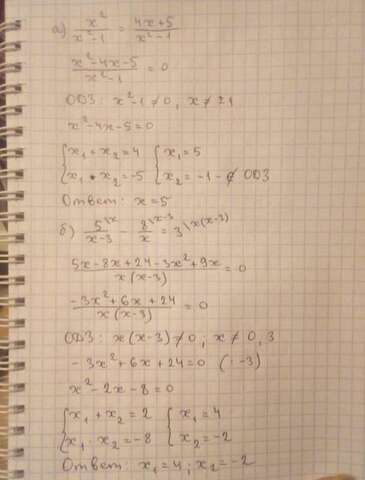 а) x²/(x²-1) = (4x+5)/(x²-1)
(x²-4x-5)/(x²-1) = 0
ОДЗ: x²-1≠0, x≠±1
x²-4x-5=0
{x₁+x₂=4 {x₁=5
{x₁·x₂=-5 {x₂=-1-∉ ОДЗ
Ответ: x=5
б) 5\x/(x-3) - 8\x-3/x = 3\x(x-3)
(5x-8x+24-3x²+9x)/(x(x-3)) = 0
(-3x²+6x+24)/(x(x-3)) = 0
ОДЗ: x(x-3)≠0; x≠0,3
-3x²+6x+24=0 (:-3)
x²-2x-8=0
{x₁+x₂=2 {x₁=4
{x₁·x₂=-8 {x₂=-2
Ответ: x₁=4; x₂=-2